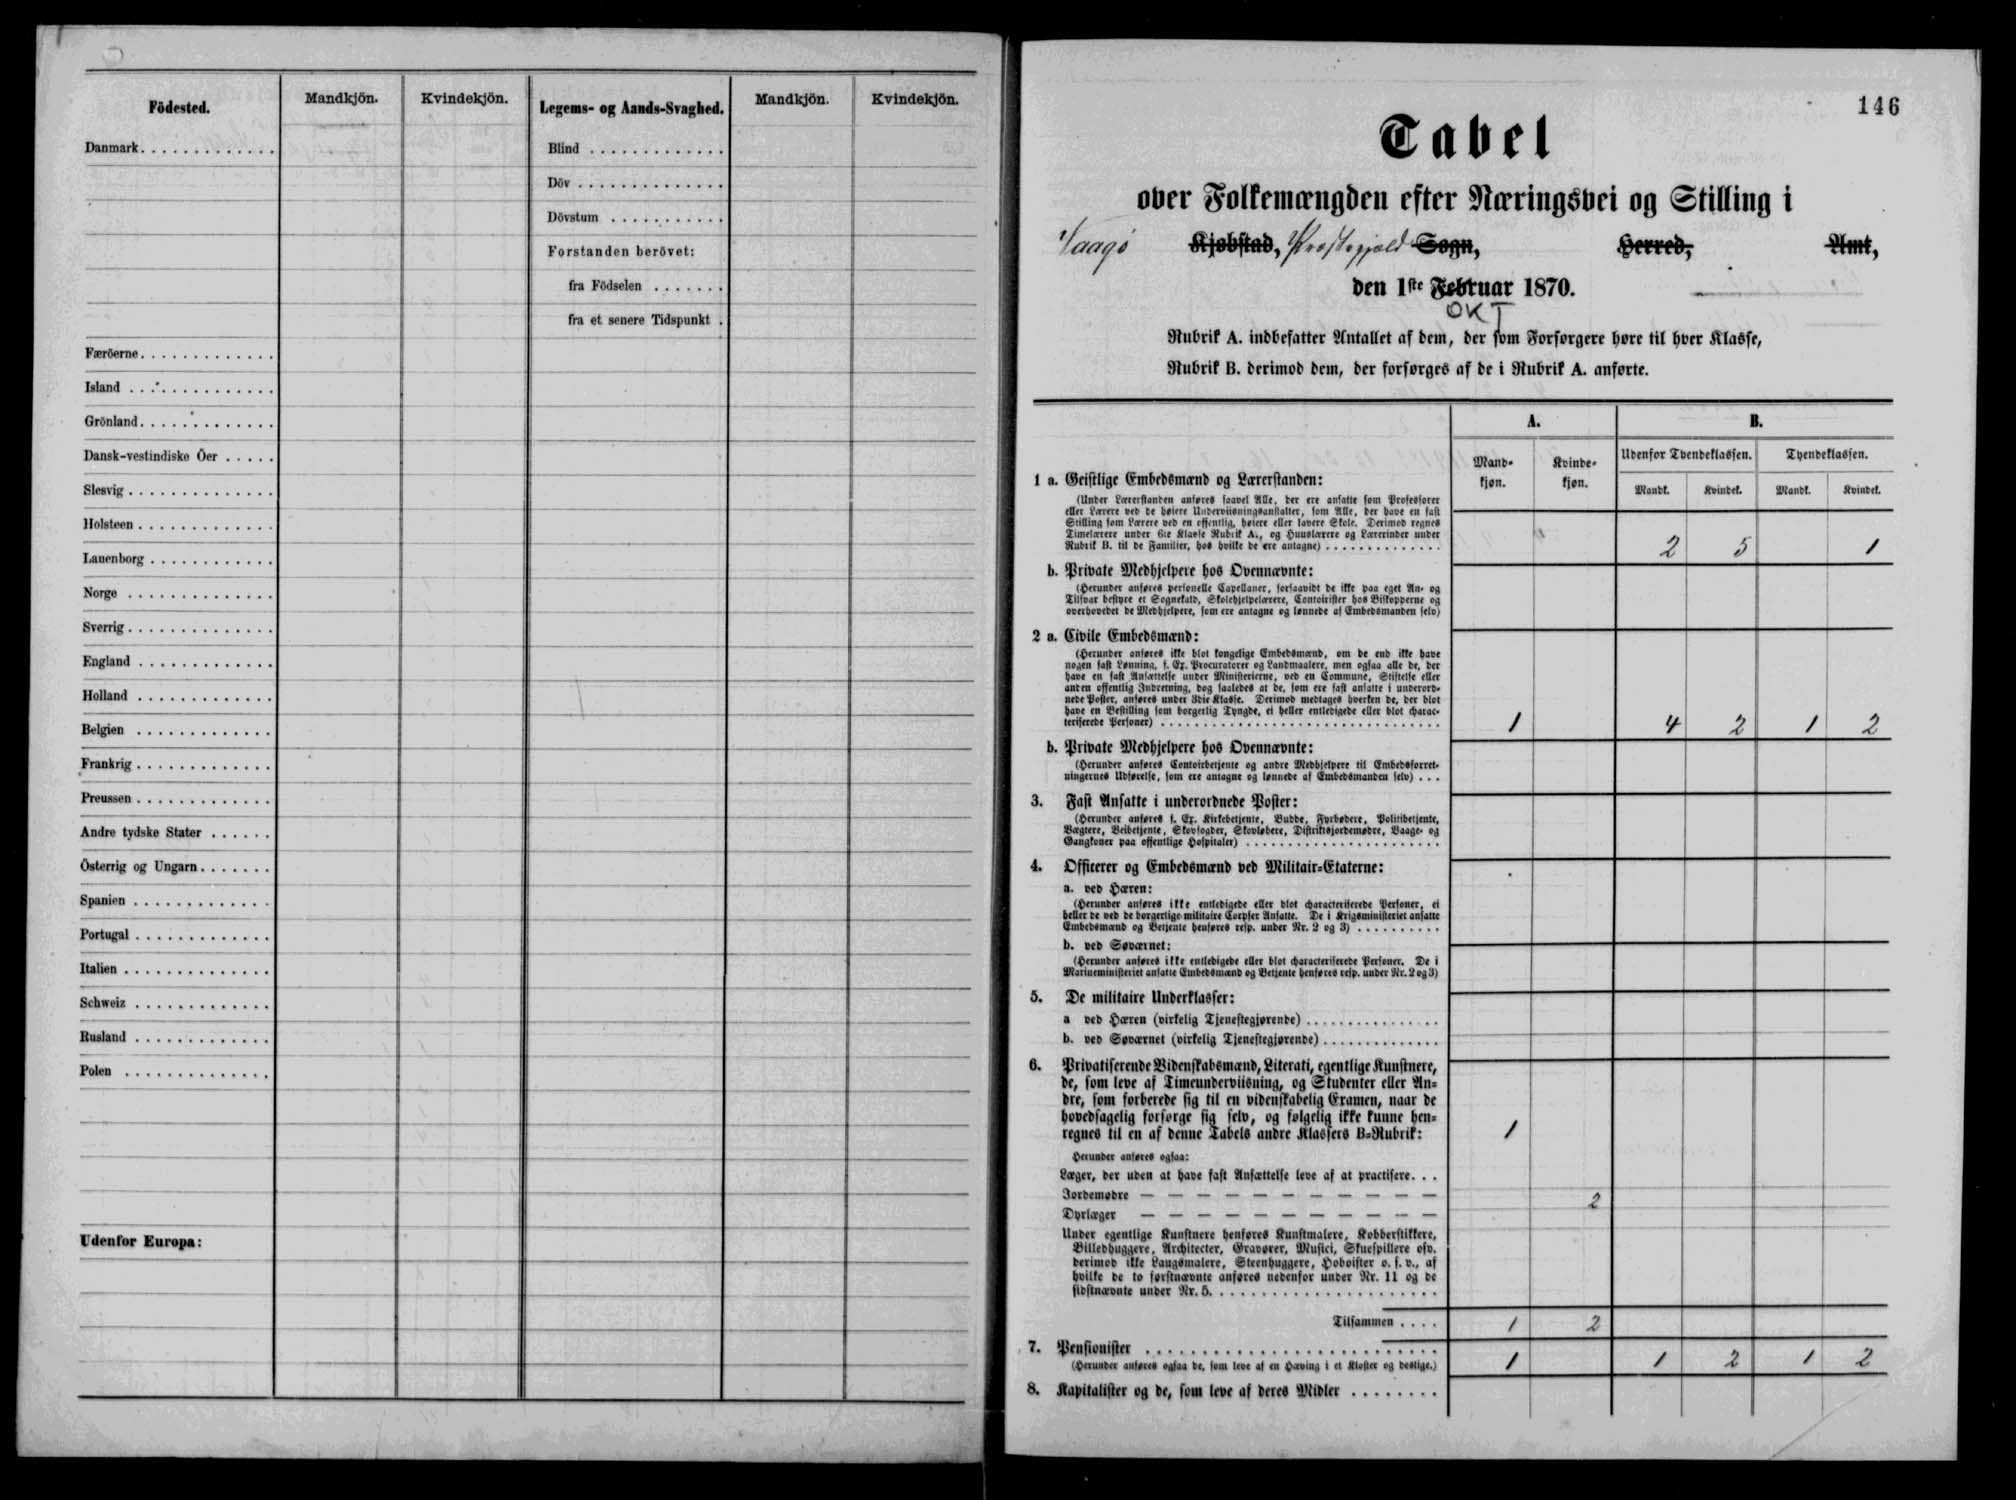 Födested.
Mandkjön.
Kvindekjön.
Legems- og Aands-Svaghed.
Mandkjön.
Kvindekjön.
Danmark
Blind
Döv
Dövstum
Forstanden berövet:
fra Födselen
fra et senere Tidspunkt
Færöerne
Island
Grönland
Dansk-vestindiske Öer
Slesvig
Holsteen
Lauenborg
Norge
Sverrig
England
Holland
Belgien
Frankrig
Preussen
Andre tydske Stater
Österrig og Ungarn
Spanien
Portugal
Italien
Schweiz
Rusland
Polen
Udenfor Europa:
146
Tabel
over Folkemængden efter Næringsvei og Stilling i
Vaagö Kjøbstad, Præstegjæld Sogn, Herred, Amt,
den 1ste Februar 1870.
OKT
Rubrik A. indbefatter Antallet af dem, der som Forsørgere høre til hver Klasse,
Rubrik B. derimod dem, der forsørges af de i Rubrik A. anførte.
A.
B.
Mand-kjøn.
Kvinde-kjøn.
Udenfor Tyendeklassen.
Tyendeklassen.
Mandk.
Kvindek.
Mandk.
Kvindek.
1 a. Geistlige Embedsmænd og Lærerstanden:
(Under Lærerstanden anføres saavel Alle, der ere ansatte som Professorer
eller Lærere ved de høiere Underviisningsanstalter, som Alle, der have en fast
Stilling som Lærere ved en offentlig, høiere eller lavere Skole. Derimod regnes
Timelærere under 6te Klasse Rubrik A., og Huuslærere og Lærerinder under
Rubrik B. til de Familier, hos hvilke de ere antagne) 2 5 1
b. Private Medhjelpere hos Ovennævnte:
(Herunder anføres personelle Capellaner, forsaavidt de ikke paa eget An- og
Tilsvar bestyre et Sognekald, Skolehjelpelærere, Contoirister hos Biskopperne og
overhovedet de Medhjelpere, som ere antagne og lønnede af Embedsmanden selv)
2 a. Civile Embedsmænd:
(Herunder anføres ikke blot kongelige Embedsmænd, om de end ikke have
nogen fast Lønning, f. Ex. Procuratorer og Landmaalere, men ogsaa alle de, der
have en fast Ansættelse under Ministerierne, ved en Commune, Stiftelse eller
anden offentlig Indretning, dog saaledes at de, som ere fast ansatte i underord-
nede Poster, anføres under 3die Klasse. Derimod medtages hverken de, der blot
have en Bestilling som borgerlig Tyngde, ei heller entledigede eller blot charac-
teriserede Personer) 1 4 2 1 2
b. Private Medhjelpere hos Ovennævnte:
(Herunder anføres Contoirbetjente og andre Medhjelpere til Embedsforret-
ningernes Udførelse, som ere antagne og lønnede af Embedsmanden selv)
3. Fast Ansatte i underordnede Poster:
(Herunder anføres f. Ex. Kirkebetjente, Budde, Fyrbødere, Politibetjente,
Vægtere, Veibetjente, Skovfogder, Skovløbere, Distriktsjordemødre, Vaage- og
Gangkoner paa offentlige Hospitaler)
4. Officerer og Embedsmænd ved Militair-Etaterne:
a. ved Hæren:
(Herunder anføres ikke entledigede eller blot characteriserede Personer, ei
heller de ved de borgerlige militaire Corpser Ansatte. De i Krigsministeriet ansatte
Embedsmænd og Betjente henføres resp. under Nr. 2 og 3)
b. ved Søværnet:
(Herunder anføres ikke entledigede eller blot characteriserede Personer. De i
Marineministeriet ansatte Embedsmænd og Betjente henføres resp. under Nr. 2 og 3)
5. De militaire Underklasser:
a ved Hæren (virkelig Tjenestegjørende)
b. ved Søværnet (virkelig Tjenestegjørende)
6. Privatiserende Videnskabsmænd, Literati, egentlige Kunstnere,
de, som leve af Timeunderviisning, og Studenter eller An-
dre, som forberede sig til en videnskabelig Examen, naar de
hovedsagelig forsørge sig selv, og følgelig ikke kunne hen-
regnes til en af denne Tabels andre Klassers B-Rubrik: 1
Herunder anføres ogsaa:
Læger, der uden at have fast Ansættelse leve af at practisere
Jordemødre — — — — — — — — — — — 2
Dyrlæger — — — — — — — — — — —
Under egentlige Kunstnere henføres Kunstmalere, Kobberstikkere,
Billedhuggere, Architecter, Gravører, Musici, Skuespillere osv.
derimod ikke Laugsmalere, Steenhuggere, Hoboister o. s. v., af
hvilke de to førstnævnte anføres nedenfor under Nr. 11 og de
sidstnævnte under Nr. 5.
Tilsammen 1 2
7. Pensionister
(Herunder anføres ogsaa de, som leve af en Hæving i et Kloster og deslige.) 1 1 2 1 2
8. Kapitalister og de, som leve af deres Midler